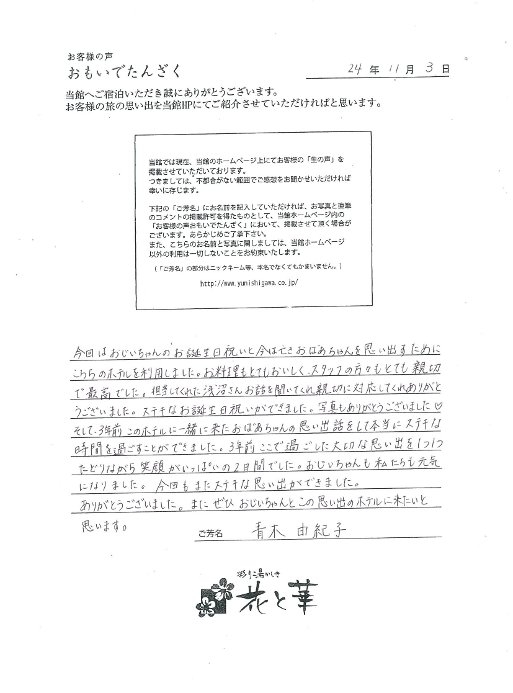 お客様の声
おもいでたんざく
24 年 11 月 3 日
当館へご宿泊いただき誠にありがとうございます。
お客様の旅の思い出を当館HPにてご紹介させていただければと思います。
当館では現在、当館のホームページ上にてお客様の「生の声」を
掲載させていただいております。
つきましては、不都合がない範囲でご感想をお聞かせいただければ
幸いに存じます。
下記の「ご芳名」にお名前を記入していただければ、お写真と直筆
のコメントの掲載許可を得たものとして、当館ホームページ内の
「お客様の声おもいでたんざく」において、掲載させて頂く場合が
ございます。あらかじめご了承下さい。
また、こちらのお名前と写真に関しましては、当館ホームページ
以外の利用は一切しないことをお約束いたします。
(「ご芳名」の部分はニックネーム等、本名でなくてもかまいません。)
http://www.yunishigawa.co.jp/
今回はおじいちゃんのお誕生日祝いと今はなきおばあちゃんを思い出すために
こちらのホテルを利用しました。お料理もとてもおいしく、スタッフの方々もとても親切
で最高でした。担当してくれた浅沼さんお話を聞いてくれ親切に対応してくれありがと
うございました。ステキなお誕生日祝いができました。写真もありがとうございました♡
そして、3年前このホテルに一緒に来たおばあちゃんの思い出話をして本当にステキな
時間を過ごすことができました。3年前ここで過ごした大切な思い出を1つ1つ
たどりながら笑顔がいっぱいの2日間でした。おじいちゃんも私たちも元気
になりました。今回もまたステキな思い出ができました。
ありがとうございました。またぜひおじいちゃんとこの思い出のホテルに来たいと
思います。
ご芳名 青木 由紀子
彩り湯かしき
花と華